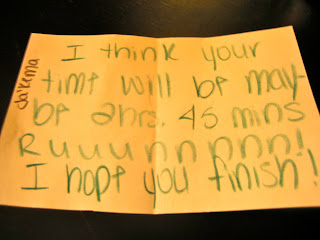 Ja'Kema
I think your
time will be may-
be 2hrs. 45 mins
Ruuuunnnnnn!
I hope you finish!